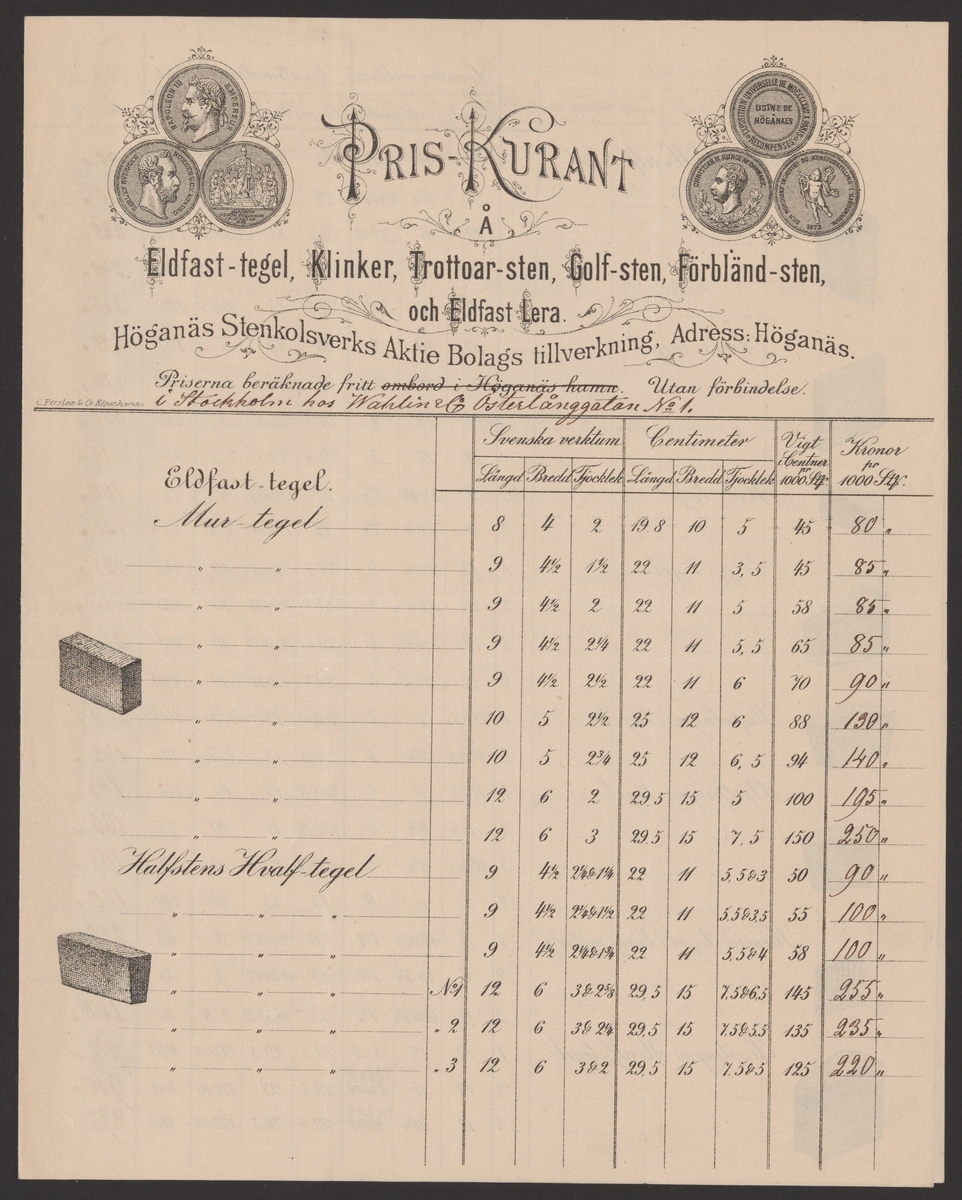 NAPOLEON III EMPEREUR
EXPOSITION UNIVERSELLE DE MDCCCLXVII A PARIS
RECOMPENSES
USINE DE
HÖGANAES
1872
PRIS-KURANT
Å
Eldfast-tegel, Klinker, Trottoar-sten, Golf-sten, Förbländ-sten,
och Eldfast Lera.
Höganäs Stenkolsverks Aktie Bolags tillverkning, Adress: Höganäs.
Priserna beräknade fritt ombord i Höganäs hamn. Utan förbindelse.
i Stockholm hos Wahlin & Co Österlånggatan No 1.
C. Ferslew & Co Köpenhamn.
Svenska verktum Centimeter Vigt i Centner pr 1000 Stk. Kronor pr 1000 Stk.
Eldfast-tegel. Längd Bredd Tjocklek Längd Bredd Tjocklek
Mur-tegel 8 4 2 19,8 10 5 45 80 "
" " 9 4½ 1½ 22 11 3,5 45 85 "
" " 9 4½ 2 22 11 5 58 85 "
" " 9 4½ 2¼ 22 11 5,5 65 85 "
" " 9 4½ 2½ 22 11 6 70 90 "
" " 10 5 2½ 25 12 6 88 130 "
" " 10 5 2¾ 25 12 6,5 94 140 "
" " 12 6 2 29,5 15 5 100 195 "
" " 12 6 3 29,5 15 7,5 150 250 "
Halfstens Hvalf-tegel 9 4½ 2¼ & 1¼ 22 11 5,5 & 3 50 90 "
" " " 9 4½ 2¼ & 1½ 22 11 5,5 & 3,5 55 100 "
" " " 9 4½ 2¼ & 1¾ 22 11 5,5 & 4 58 100 "
" " " No 1 12 6 3 & 2⅝ 29,5 15 7,5 & 6,5 145 255 "
" " " " 2 12 6 3 & 2¼ 29,5 15 7,5 & 5,5 135 235 "
" " " " 3 12 6 3 & 2 29,5 15 7,5 & 5 125 220 "